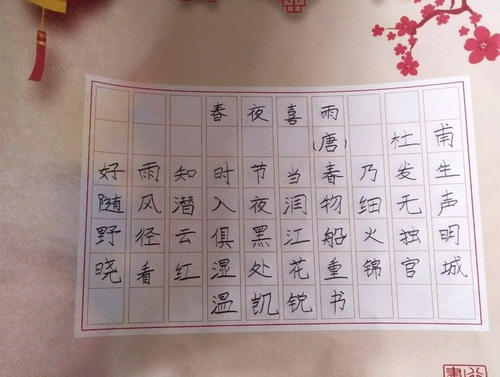 春夜喜雨
(唐) 杜甫
好雨知时节当春乃发生
随风潜入夜润物细无声
野径云俱黑江船火独明
晓看红湿处花重锦官城
温凯锐书